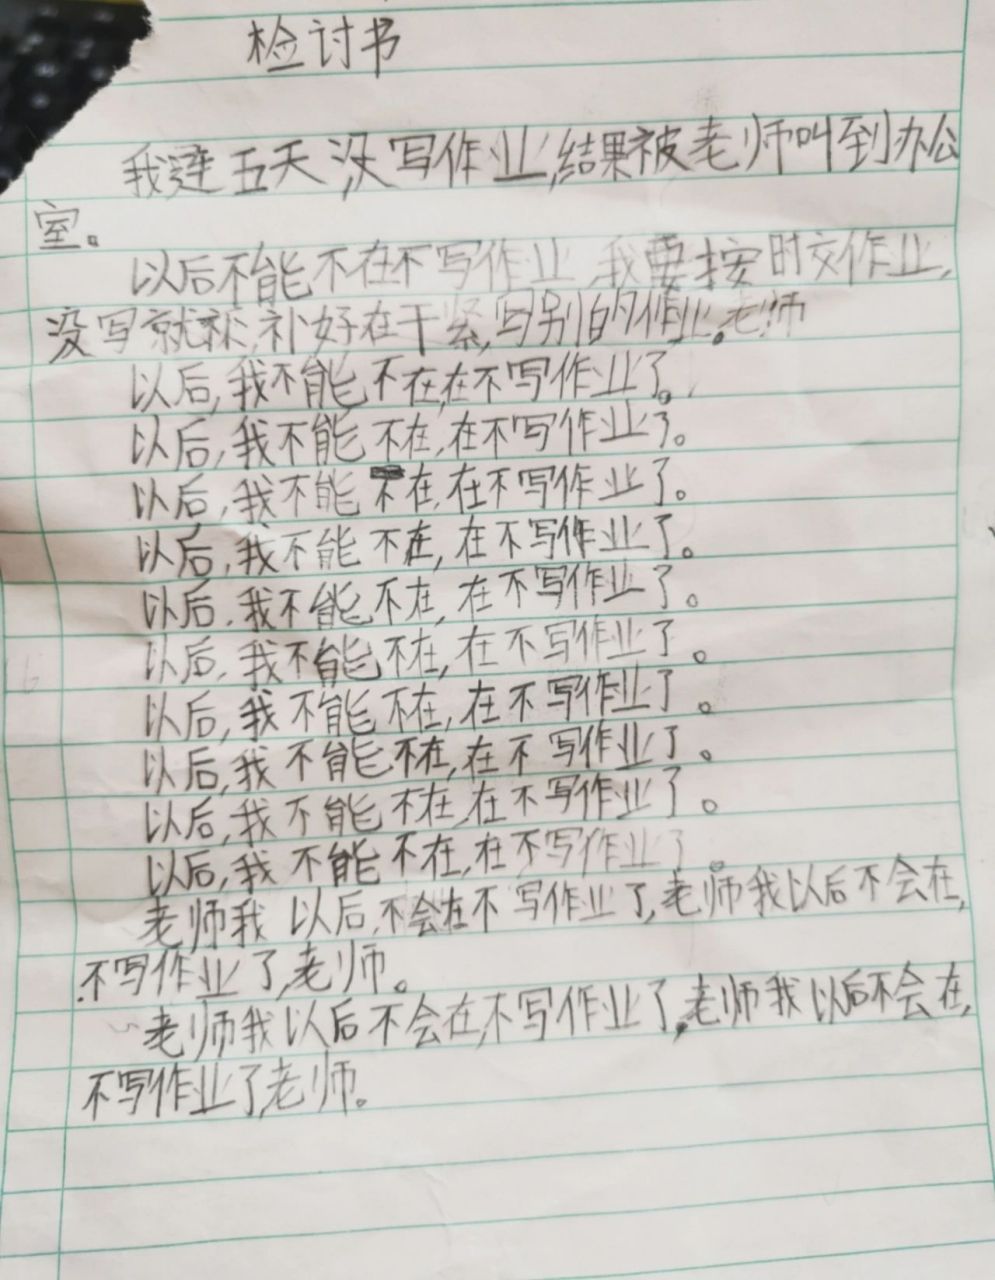 检讨书
我连五天没写作业,结果被老师叫到办公
室。
以后不能不在不写作业,我要按时交作业,
没写就补,补好在干紧,写别的作业。老师
以后,我不能不在,在不写作业了。
以后,我不能不在,在不写作业了。
以后,我不能不在,在不写作业了。
以后,我不能不在,在不写作业了。
以后,我不能不在,在不写作业了。
以后,我不能不在,在不写作业了。
以后,我不能不在,在不写作业了。
以后,我不能不在,在不写作业了。
以后,我不能不在,在不写作业了。
以后,我不能不在,在不写作业了。
老师我以后,不会在不写作业了,老师我以后不会在,
不写作业了,老师。
老师我以后不会在,不写作业了,老师我以后不会在,
不写作业了,老师。